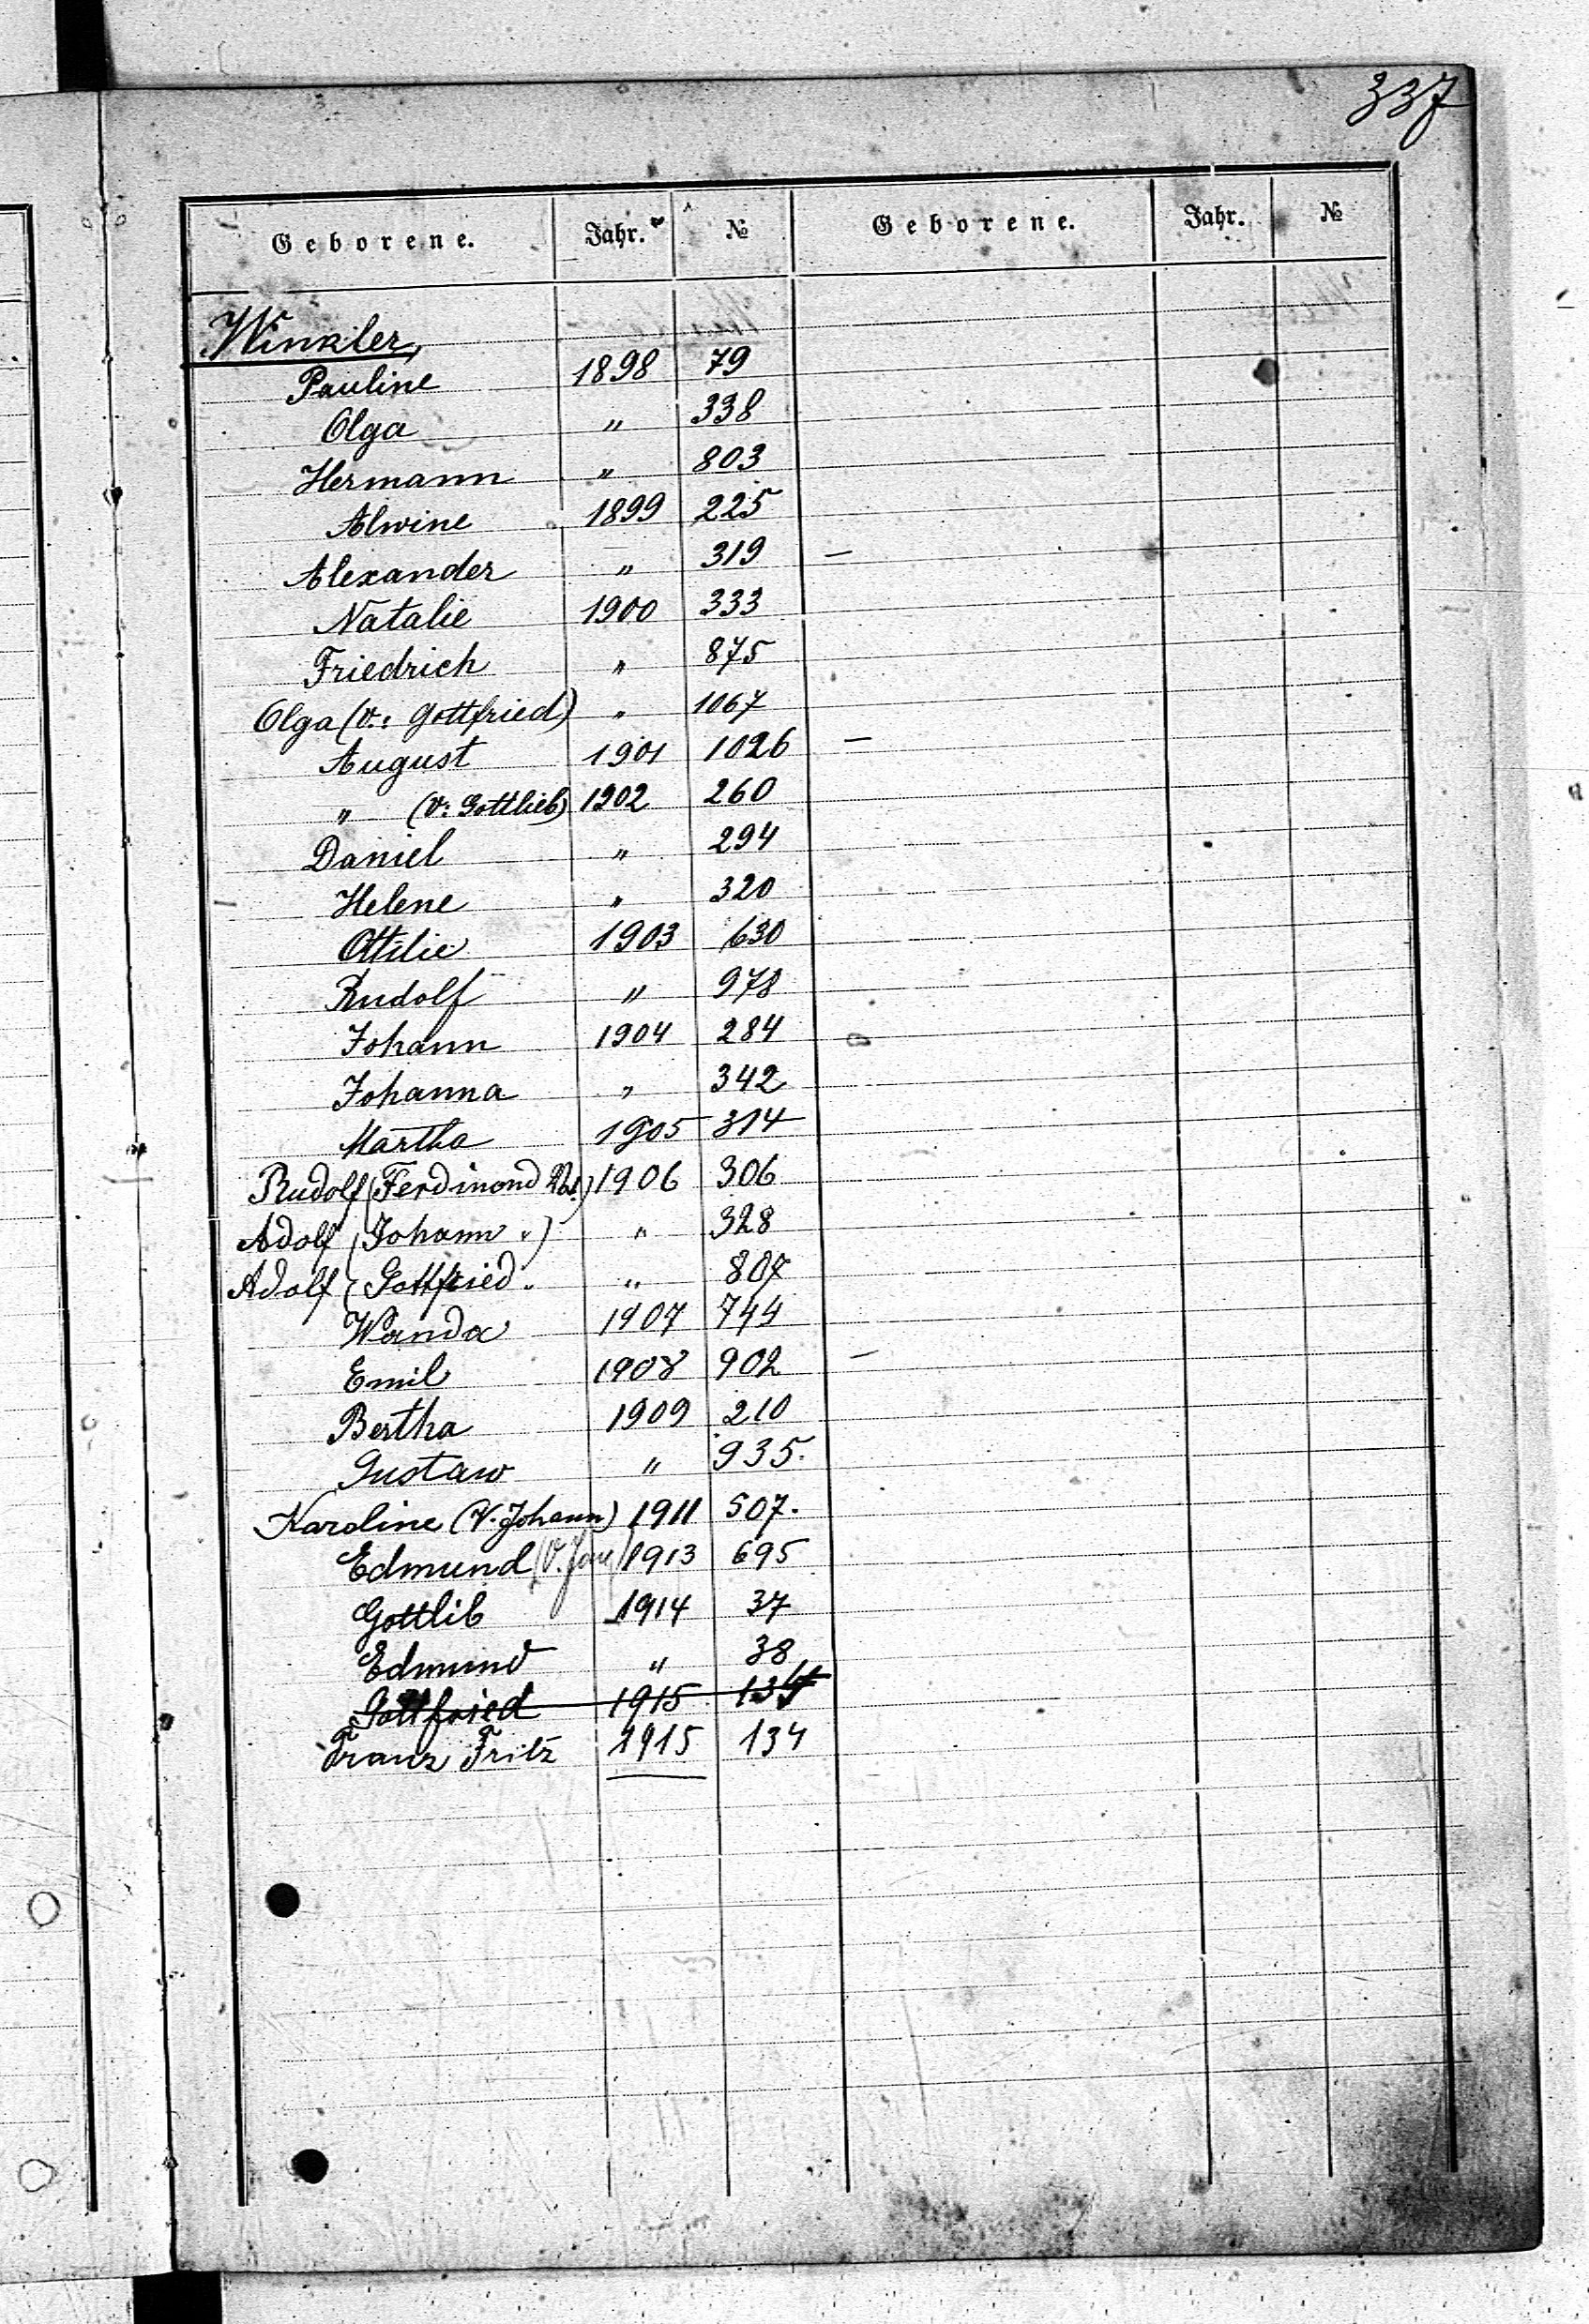 337
Geborene. Jahr. № Geborene. Jahr. №
Winkler,
Pauline 1898 79
Olga " 338
Hermann " 803
Alwine 1899 225
Alexander " 319 —
Natalie 1900 333
Friedrich " 875
Olga (V.: Gottfried) " 1067
August 1901 1026 —
" (V: Gottlieb) 1902 260
Daniel " 294
Helene " 320
Ottilie 1903 630
Rudolf " 978
Johann 1904 284
Johanna " 342
Martha 1905 314
Rudolf (Ferdinand ) 1906 306
Adolf (Johann ") " 328
Adolf (Gottfried " " 807
Wanda 1907 744
Emil 1908 902 —
Bertha 1909 210
Gustaw " 935.
Karoline (V. Johann) 1911 507.
Edmund (V. ) 1913 695
Gottlib 1914 37
Edmund " 38
Gottfried 1915 134
Franz Fritz 1915 134